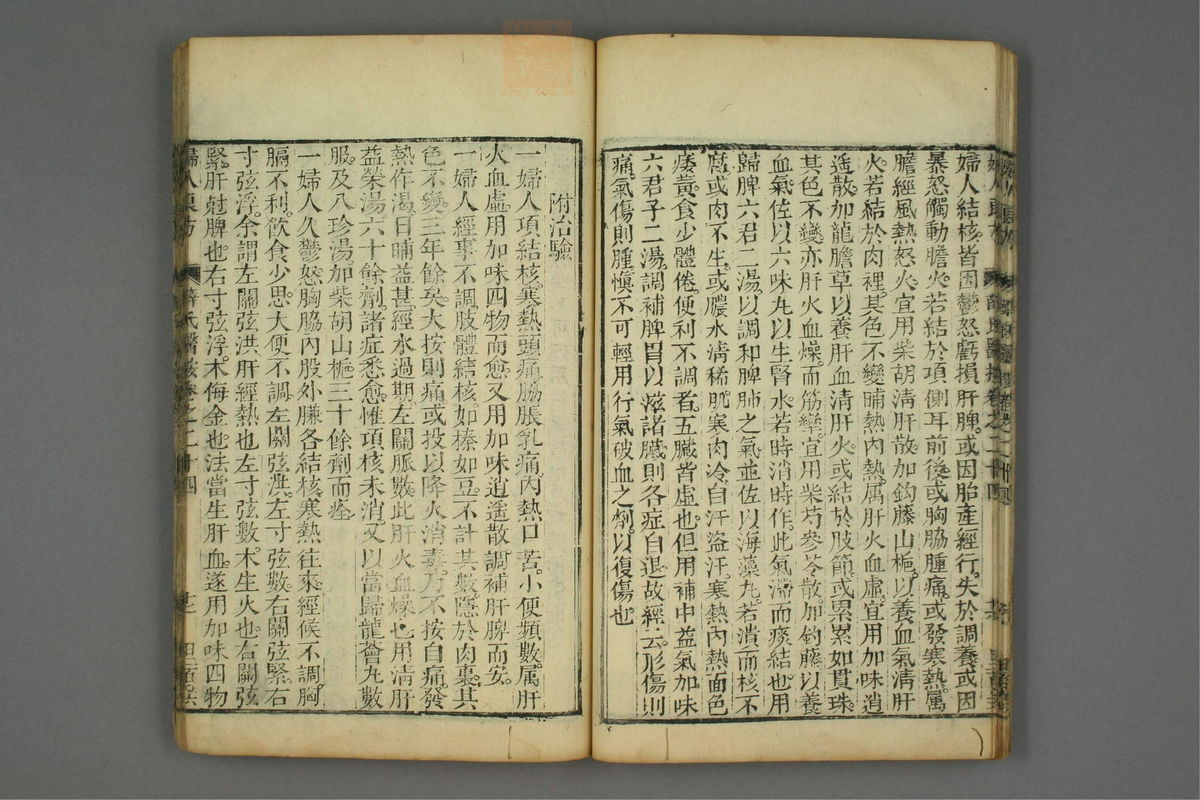 婦人結核皆因鬱怒虧損肝脾或因胎產經行失於調養或因
暴怒觸動膽火若結於項側耳前後或胸脇腫痛或發寒熱屬
膽經風熱怒火宜用柴胡清肝散加鈎藤山梔以養血氣清肝
火若結於肉裡其色不變晡熱內熱屬肝火血虛宜用加味逍
遙散加龍膽草以養肝血清肝火或結於肢節或累累如貫珠
其色不變亦肝火血燥而筋攣宜用柴芍參苓散加鈎藤以養
血氣佐以六味丸以生腎水若時消時作此氣滯而痰結也用
歸脾六君二湯以調和脾肺之氣並佐以海藻丸若潰而核不
腐或肉不生或膿水清稀肌寒肉冷自汗盜汗寒熱內熱面色
痿黃食少體倦便利不調者五臟皆虛也但用補中益氣加味
六君子二湯調補脾胃以滋諸臟則各症自退故經云形傷則
痛氣傷則腫愼不可輕用行氣破血之劑以復傷也
附治驗
一婦人項結核寒熱頭痛脇脹乳痛內熱口苦小便頻數屬肝
火血虛用加味四物而愈又用加味逍遙散調補肝脾而安
一婦人經事不調肢體結核如榛如豆不計其數隱於肉裏其
色不變三年餘矣大按則痛或投以降火消毒乃不按自痛發
熱作渴日晡益甚經水過期左關脈數此肝火血燥也用清肝
益榮湯六十餘劑諸症悉愈惟項核未消又以當歸龍薈丸數
服及八珍湯加柴胡山梔三十餘劑而痊
一婦人久鬱怒胸脇內股外臁各結核寒熱往來經候不調胸
膈不利飲食少思大便不調左關弦洪左寸弦數右關弦緊右
寸弦浮余謂左關弦洪肝經熱也左寸弦數木生火也右關弦
緊肝尅脾也右寸弦浮木侮金也法當生肝血遂用加味四物
婦人良方 薛氏醫按卷之二十四